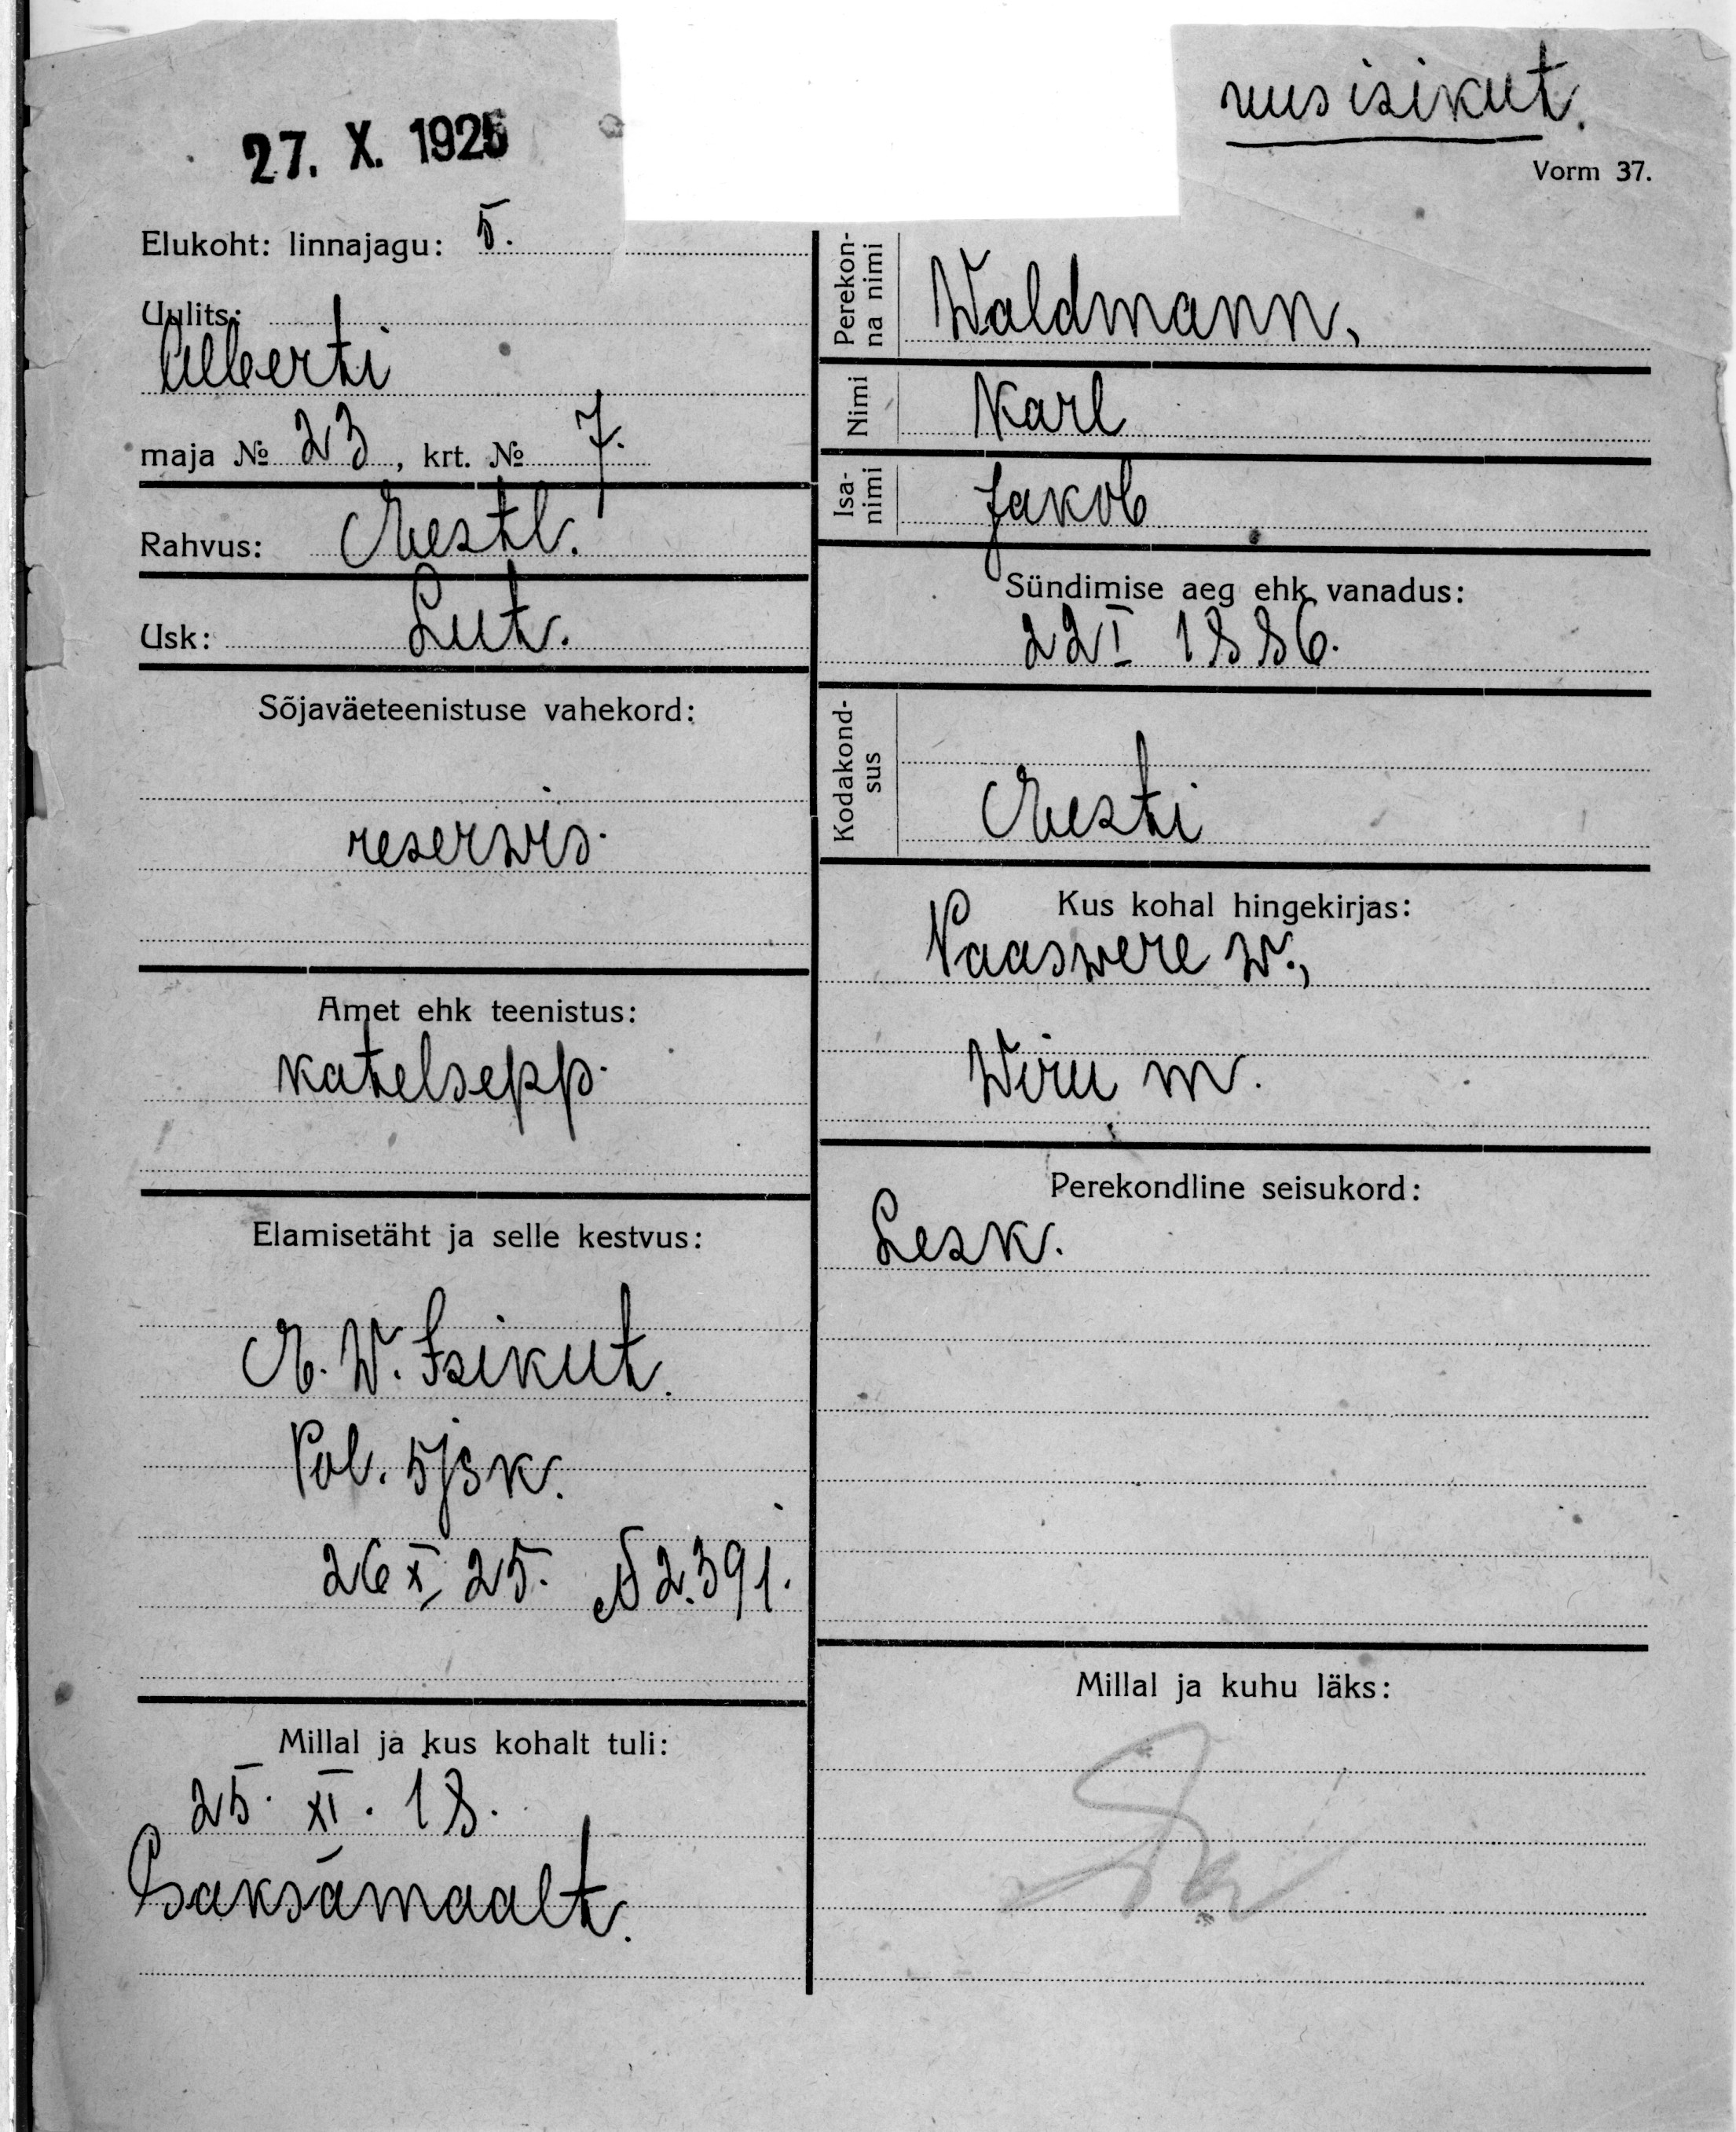 27. X. 1925
uus isikut.
Vorm 37.
Elukoht: linnajagu: 5.
Uulits:
Alberti
maja № 23, krt. № 7.
Rahvus: Eestl.
Usk: Lut.
Sõjaväeteenistuse vahekord:
reserwis.
Amet ehk teenistus:
katelsepp.
Elamisetäht ja selle kestvus:
E. W. Isikut.
Pol. 5 jsk.
26 X 25. № 2.391.
Millal ja kus kohalt tuli:
25. XI. 18.
Saksamaalt.
Perekon-
na nimi
Waldmann,
Nimi
Karl
Isa-
nimi
Jakob
Sündimise aeg ehk vanadus:
22 I 1886.
Kodakond-
sus
Eesti
Kus kohal hingekirjas:
Paaswere w.,
Wiru m.
Perekondline seisukord:
Lesk.
Millal ja kuhu läks: